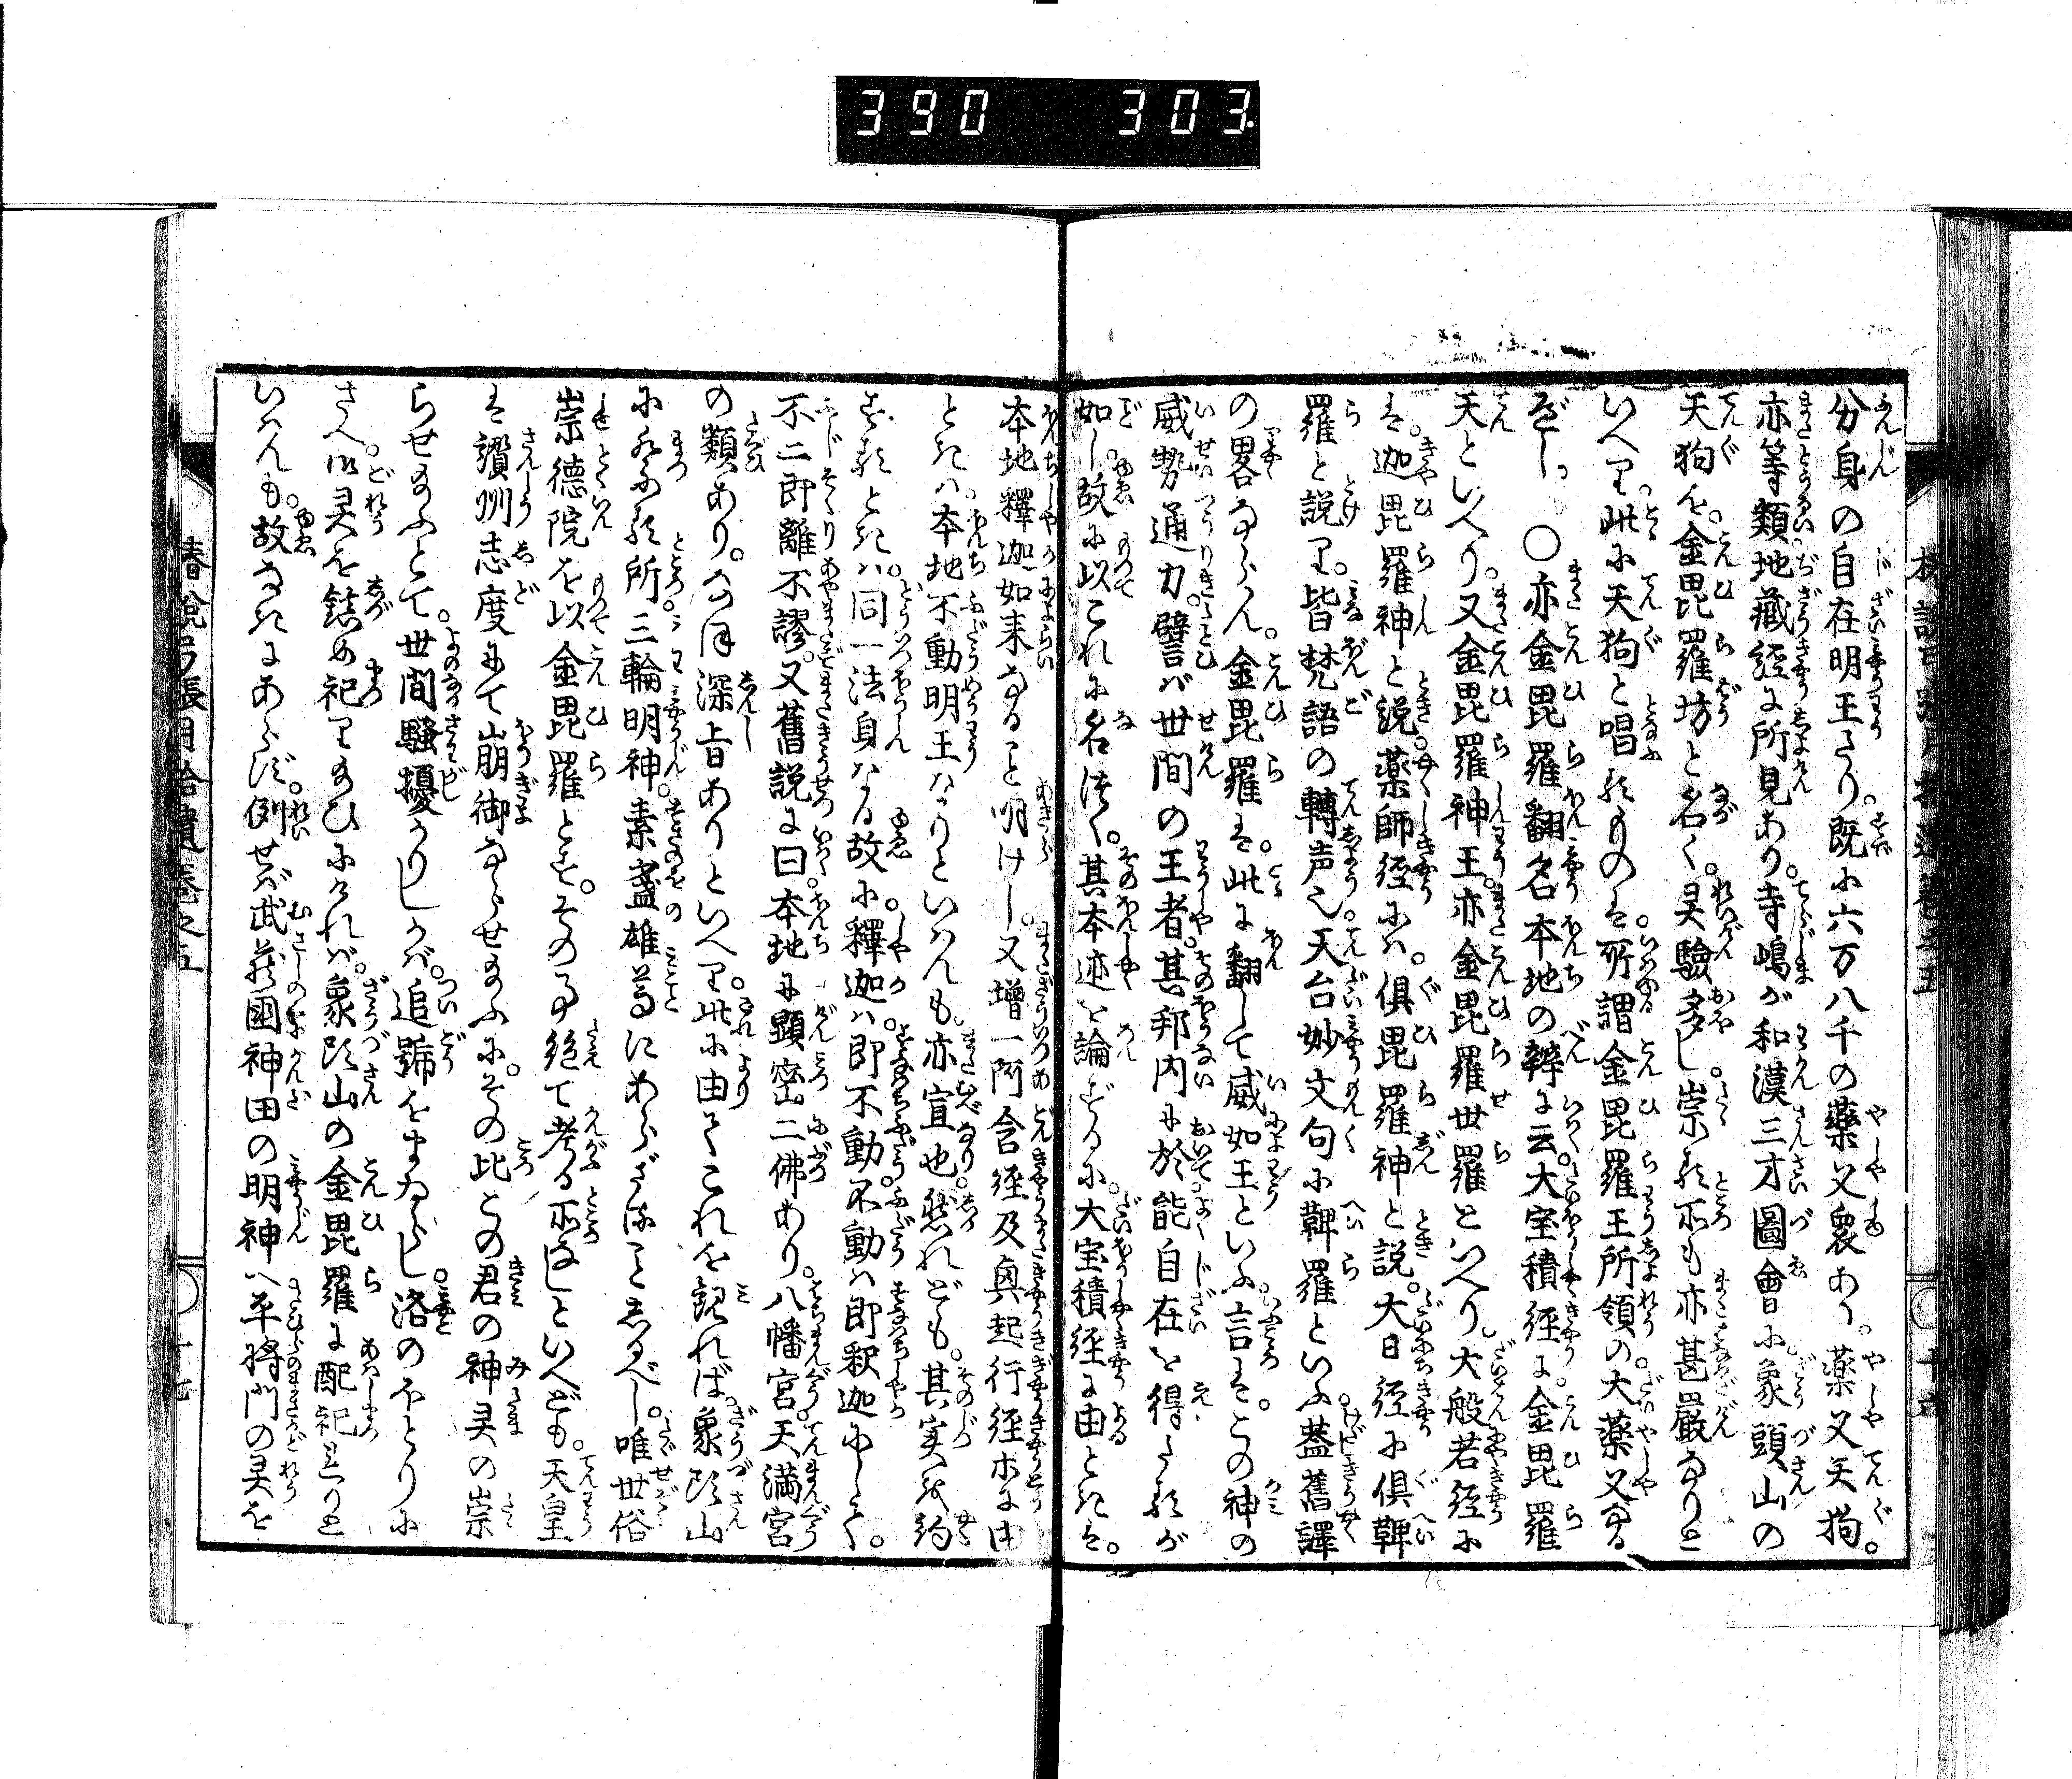 390 303
分身の自在明王たり。既に六万八千の薬叉衆あり。薬叉天狗。
亦等類地蔵経に所見あり。寺嶋が和漢三才圖會に象頭山の
天狗を金毘羅坊と名く。灵驗多し。崇る所も亦甚嚴なりと
いへり。此に天狗と唱るものは。所謂金毘羅王所領の大薬叉なる
べし。 ○亦金毘羅翻名本地の辨に云。大宝積経に。金毘羅
天といへり。又金毘羅神王。亦金毘羅世羅といへり。大般若経に
は。迦毘羅神と説。薬師経には。倶毘羅神と説。大日経に倶鞞
羅と説り。皆梵語の轉声也。天台妙文句に鞞羅といふ。蓋舊譯
の畧ならん。金毘羅は。此に翻して威如王といふ。言は。この神の
威勢通力。譬ば世間の王者。其邦内に於能自在を得たるが
如し。故に以これに名つく。其本迹を論ずるに。大宝積経に由ときは。
本地釋迦如来なること明けし。又増一阿含経及興起行経ホに由
ときハ。本地不動明王なりといはんも。亦宜也。然れども。其実を約
するときハ。同一法身なる故に。釋迦ハ即不動。不動ハ即釈迦にして。
不二即離不謬。又舊説に曰。本地に顕密二佛あり。八幡宮天満宮
の類あり。なほ深旨ありといへり。此に由てこれを観れば。象頭山
に祭る所。三輪明神。素盞雄尊にあらざることしるべし。唯世俗
崇德院を以金毘羅とす。その事絶て考る所なしといへども。天皇
は讚州志度にて崩御ならせ給ふに。その比この君の神灵の崇
らせ給ふとて。世間騒擾かりしかば。追號をまゐらし。洛のほとりに
さへ。御灵を鎮め祀り給ひにければ。象頭山の金毘羅に配祀しと
いはんも。故なきにあらず。例せば武藏國神田の明神ハ平将門の灵を
椿説弓張月拾遺巻之五